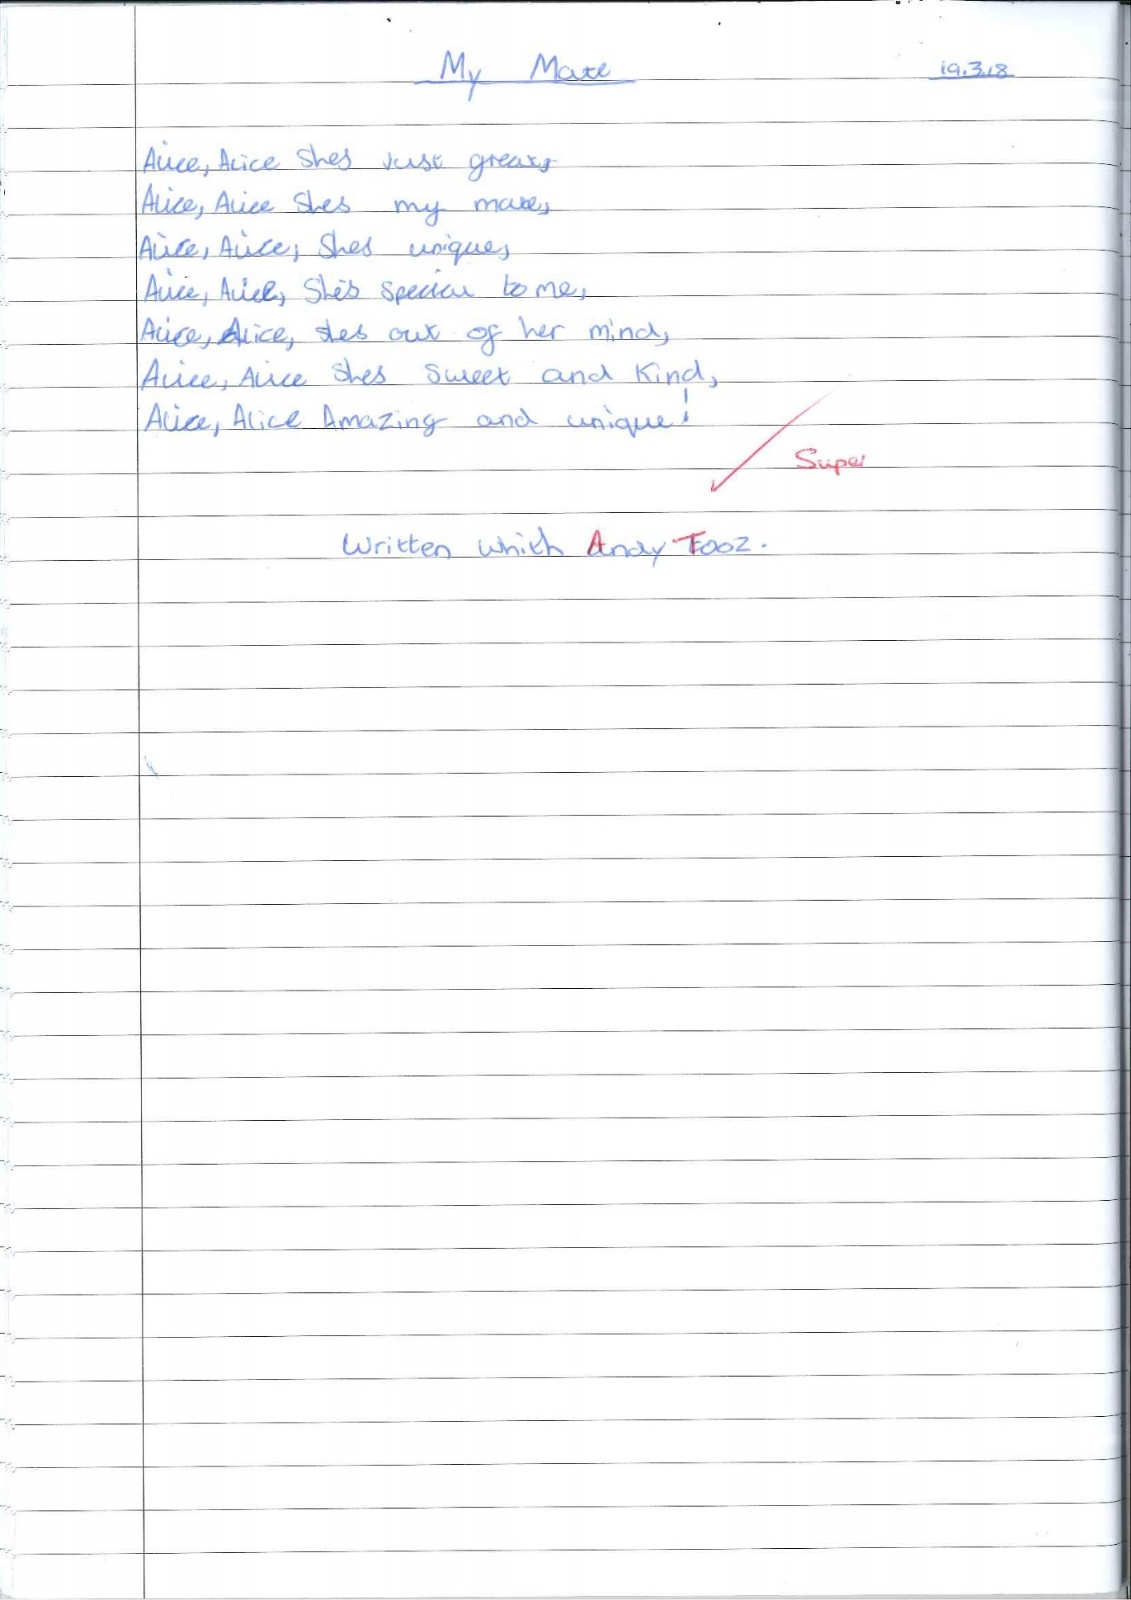 My Mate
19.3.18
Alice, Alice Shes Just great,
Alice, Alice Shes my mate,
Alice, Alice, Shes unique,
Alice, Alice, She's special to me,
Alice, Alice, shes out of her mind,
Alice, Alice Shes Sweet and Kind,
Alice, Alice Amazing and unique!
Super
Written which Andy Tooz.